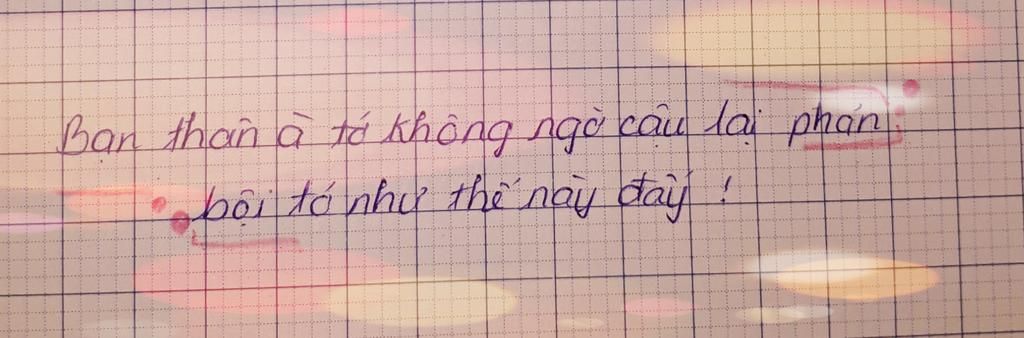 Bạn thân à tớ không ngờ cậu lại phản
bội tớ như thế này đây !